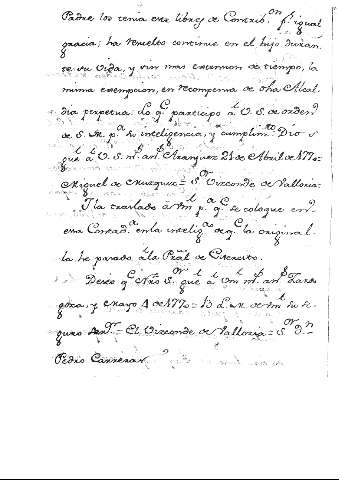 Padre los tenia era libre de Contrib.on p.r igual
gracia; ha resuelto continue en el hijo duran-
te su vida, y sin mas extension de tiempo, la
misma exempcion, en recompensa de dha Alcal-
dia perpetua. Lo q.e participo à V.S. de orden
de S.M. p.a su inteligencia, y cumplim.to Dios
gue à V.S. m.s an.s Aranjuez 21 de Abril de 1770=
Miguel de Muzquiz = S.or Vizconde de Valloria:
Y la traslado à Vm p.a q.e se coloque en
esa Contad.a en la intelig.a de q.e la original
la he pasado à la Pral de Exercito.
Deseo q.e Nro S.or gue à Vm m.s an.s Zara-
goza, y Mayo 4 de 1770 = B.L.M. de Vm su se-
guro = El Vizconde de Valloria = S.or D.n
Pedro Carreras